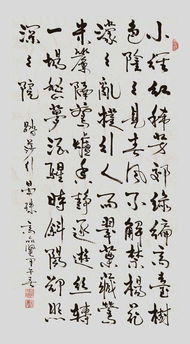 小徑紅稀芳郊綠遍高臺樹
色陰々見春風不解禁楊花
濛々亂撲行人面翠葉藏鶯
朱簾隔燕爐香靜逐遊絲轉
一場愁夢酒醒時斜陽卻照
深々院
踏莎行晏殊 甲午